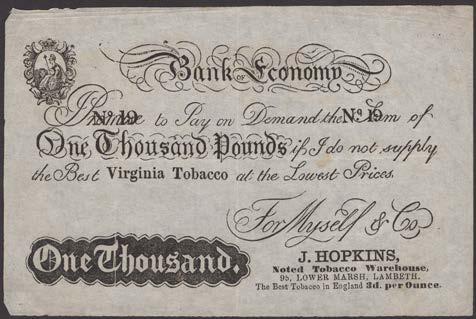 Bank OF Economy
I Promise to Pay on Demand the Sum of
No. 19 No. 19
One Thousand Pounds if I do not supply
the Best Virginia Tobacco at the Lowest Prices.
For Myself & Co.
One Thousand.
J. HOPKINS,
Noted Tobacco Warehouse,
95, LOWER MARSH, LAMBETH.
The Best Tobacco in England 3d. per Ounce.